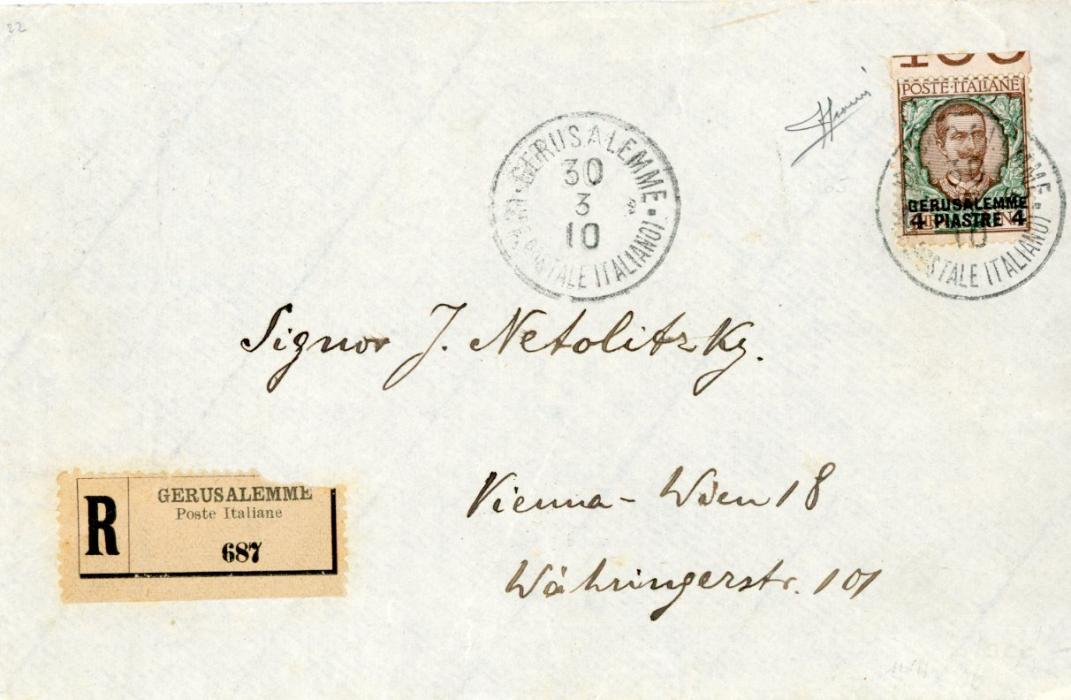 22
100
POSTE·ITALIANE
GERUSALEMME
4 PIASTRE 4
GERUSALEMME
(UFF. POSTALE ITALIANO)
30
3
10
Signor J. Netolitzky.
Vienna - Wien 18
Währingerstr. 101
R
GERUSALEMME
Poste Italiane
687